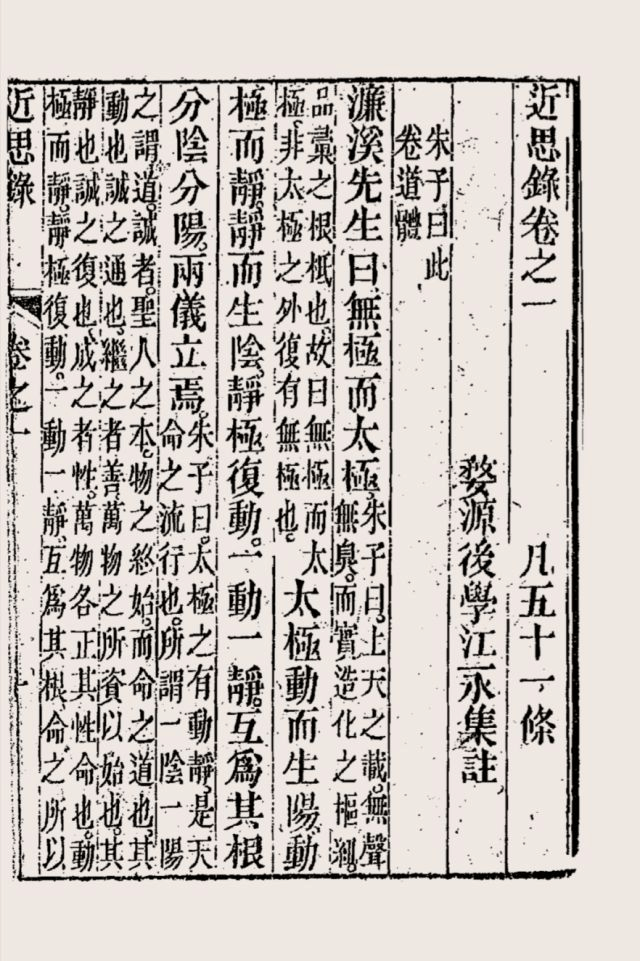 近思錄卷之一　凡五十一條
婺源後學江永集註
朱子曰此
卷道體
濂溪先生曰無極而太極。朱子曰。上天之載。無聲
無臭。而實造化之樞紐。
品彙之根柢也。故曰無極而太
極。非太極之外復有無極也。
太極動而生陽。動
極而靜。靜而生陰。靜極復動。一動一靜。互爲其根
分陰分陽。兩儀立焉。朱子曰。太極之有動靜。是天
命之流行也。所謂一陰一陽
之謂道。誠者。聖人之本。物之終始。而命之道也。其
動也。誠之通也。繼之者善。萬物之所資以始也。其
靜也。誠之復也。成之者性。萬物各正其性命也。動
極而靜。靜極復動。一動一靜。互爲其根。命之所以
近思錄　卷之一　一